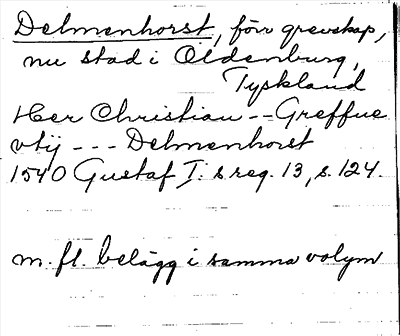 Delmenhorst, förr grevskap,
nu stad i Oldenburg,
Tyskland
Her Christian -- Greffue
vtij --- Delmenhorst
1540 Gustaf I:s reg. 13, s. 124.
m. fl. belägg i samma volym